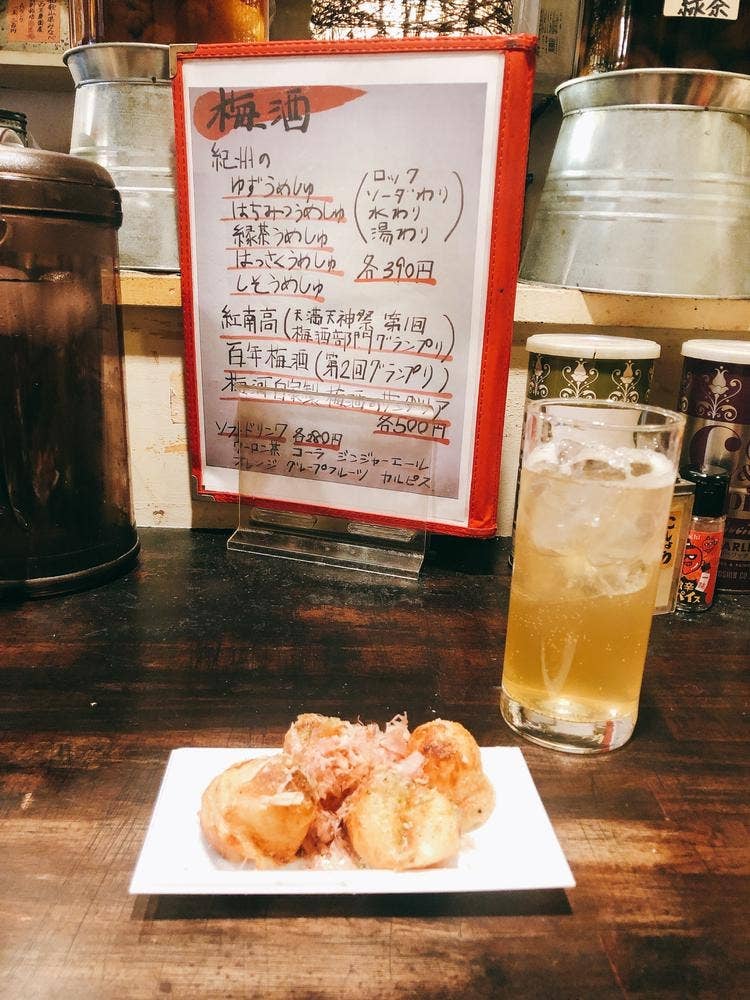 緑茶
梅酒
紀州の
ゆずうめしゅ
はちみつうめしゅ
緑茶うめしゅ
はっさくうめしゅ
しそうめしゅ
(ロック
ソーダわり
水わり
湯わり)
各390円
紅南高(天満天神祭 第1回
梅酒部門グランプリ)
百年梅酒(第2回グランプリ)
自家製 梅酒
各500円
ソフトドリンク 各280円
ウーロン茶 コーラ ジンジャーエール
オレンジ グレープフルーツ カルピス